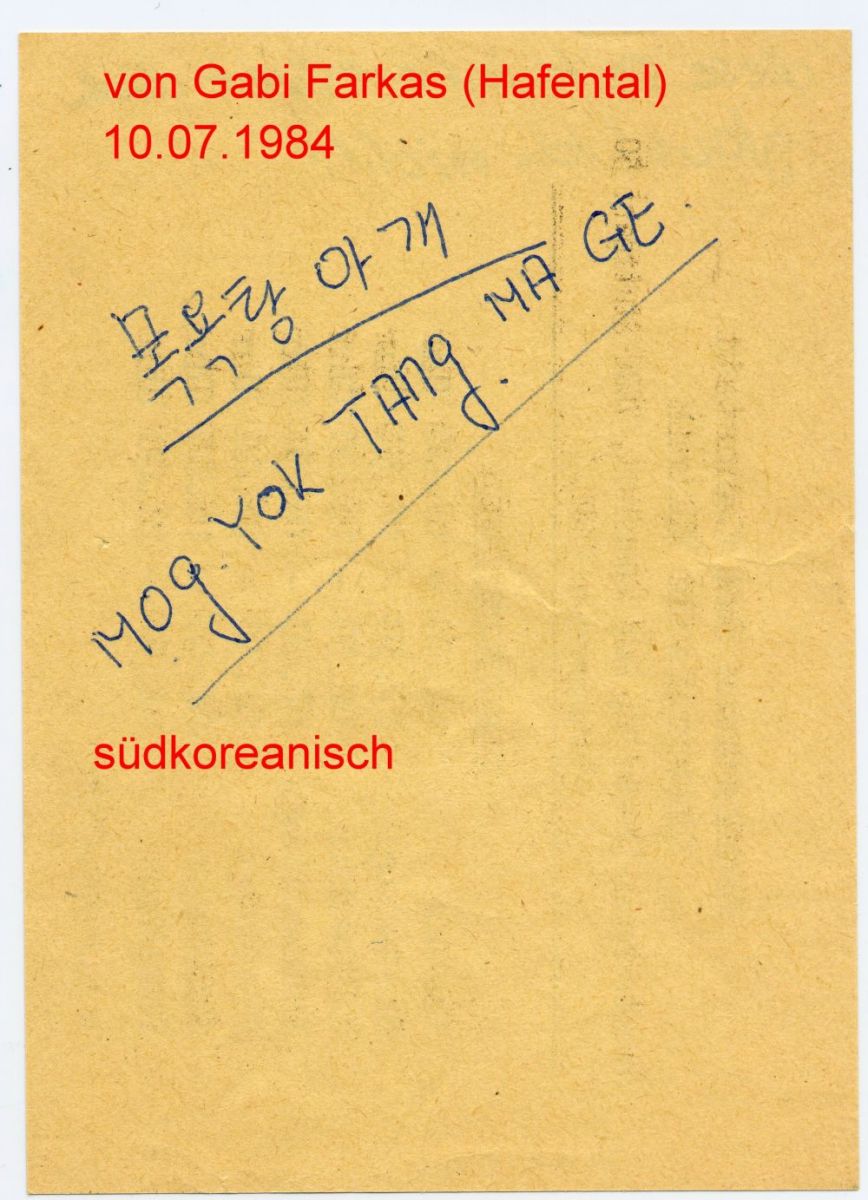 von Gabi Farkas (Hafental)
10.07.1984
목욕탕 아개
MOg. YOK TANg. MA GE.
südkoreanisch